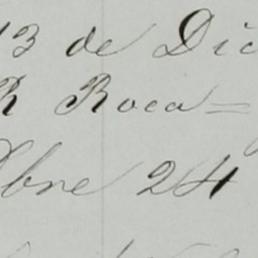 13 de Dic
R Roca =
Xbre 24